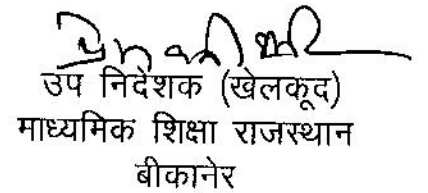 उप निदेशक (खेलकूद)
माध्यमिक शिक्षा राजस्थान
बीकानेर